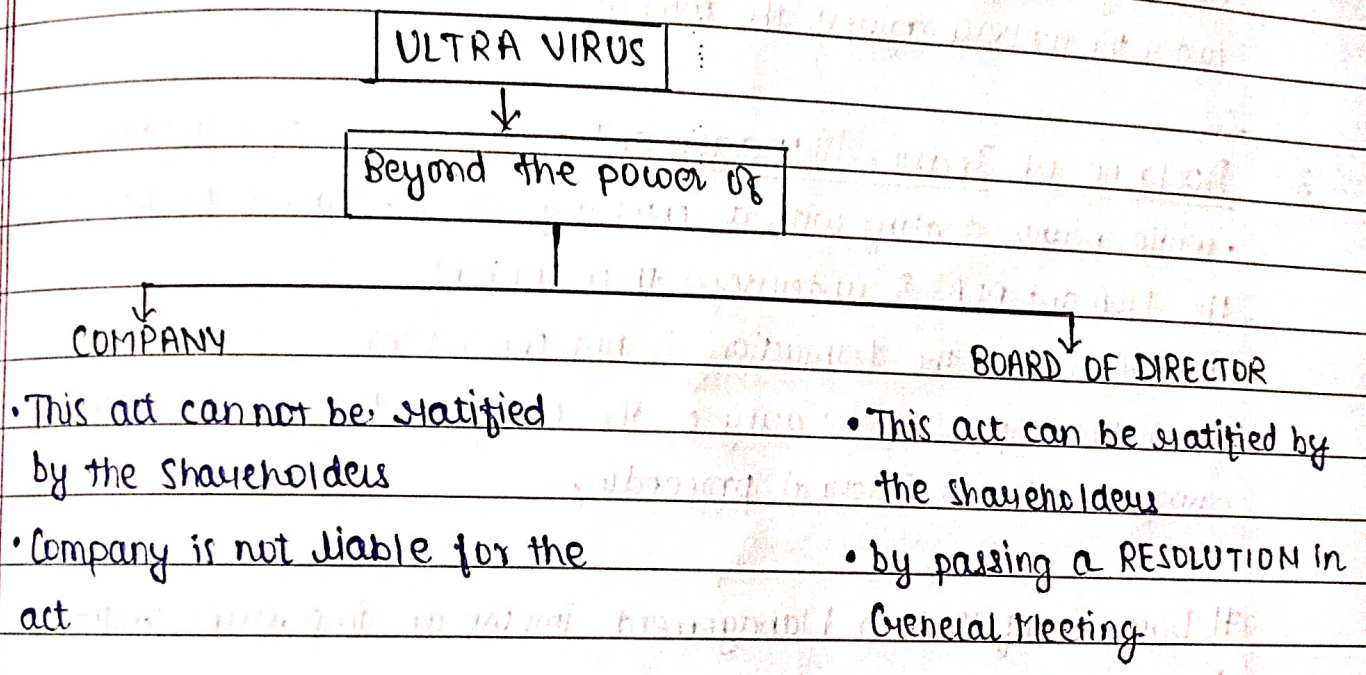 ULTRA VIRUS
Beyond the power of
COMPANY
• This act cannot be ratified
by the Shareholders
• Company is not liable for the
act
BOARD OF DIRECTOR
• This act can be ratified by
the shareholders
• by passing a RESOLUTION in
General Meeting